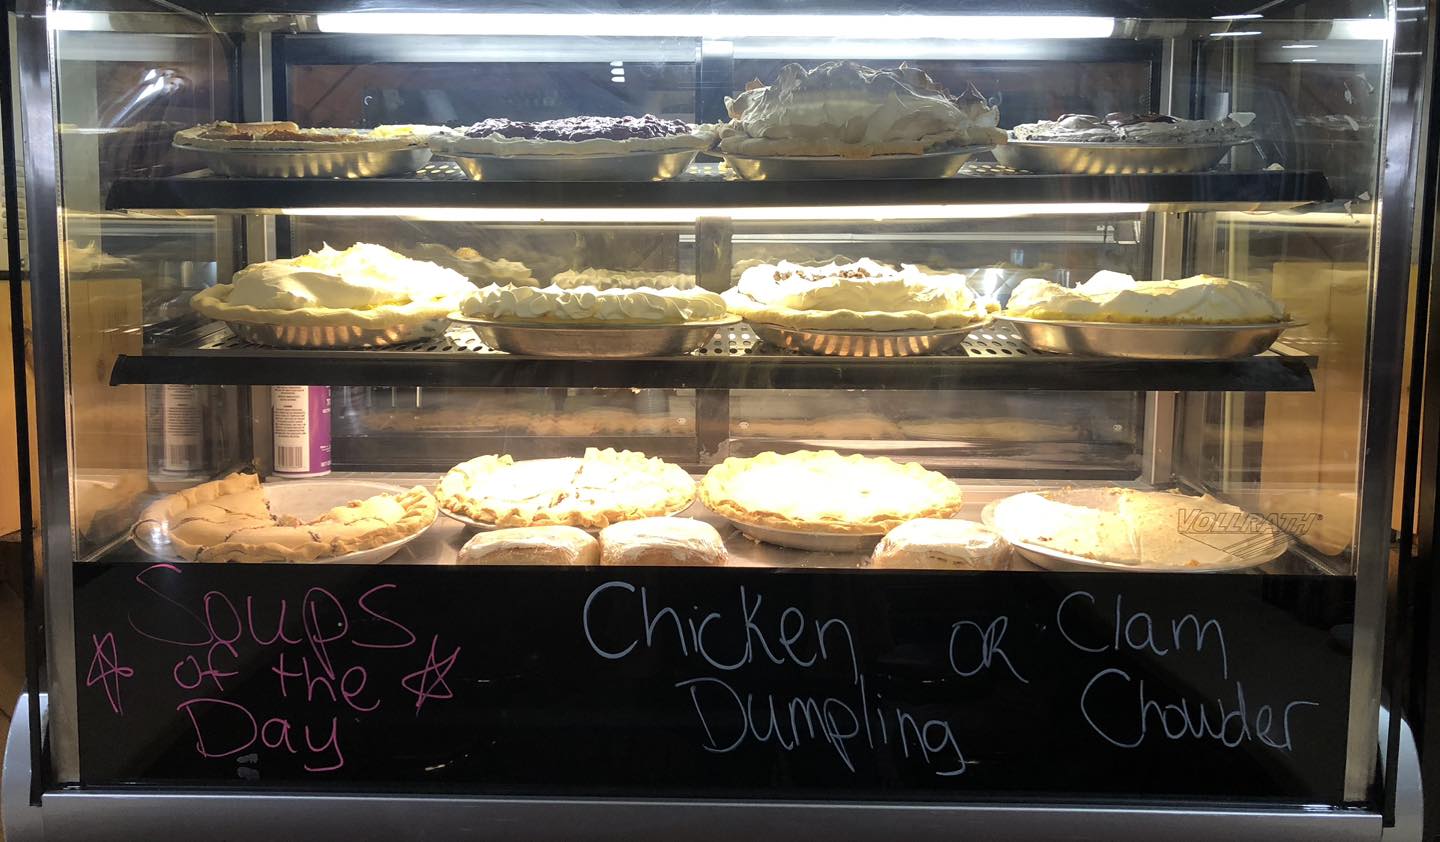 VOLLRATH®
Soups
of the
Day
Chicken
Dumpling
OR
Clam
Chowder